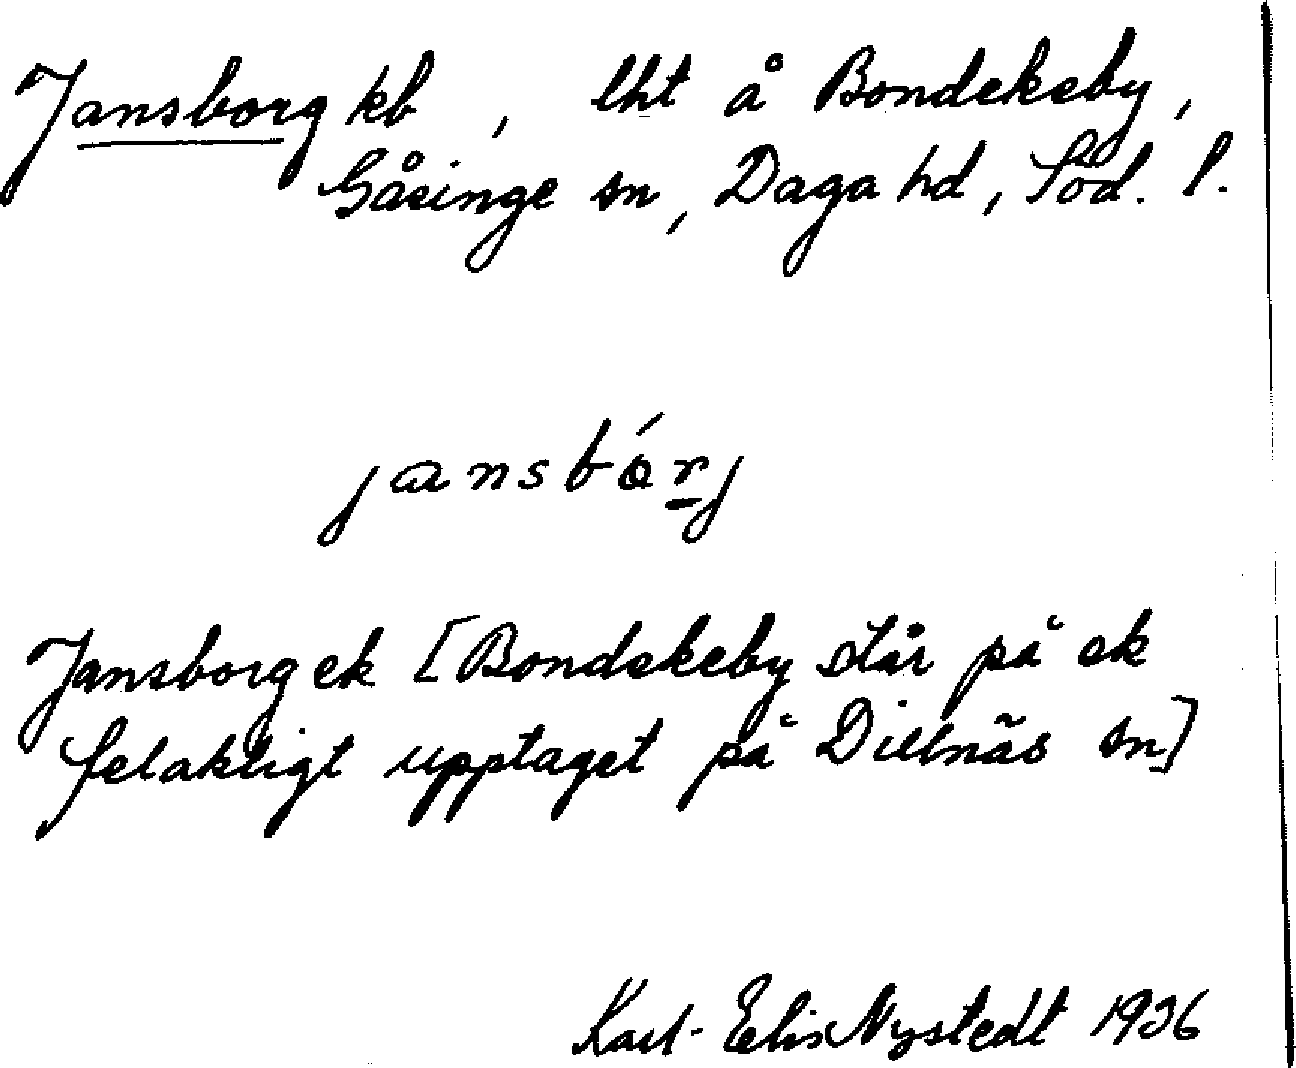 Jansborg kb, lht å Bondekeby,
Gåsinge sn, Daga hd, Söd. l.
jansbórj
Jansborg ek [Bondekeby står på ek
felaktigt upptaget på Dillnäs sn]
Karl-Elis Nystedt 1936